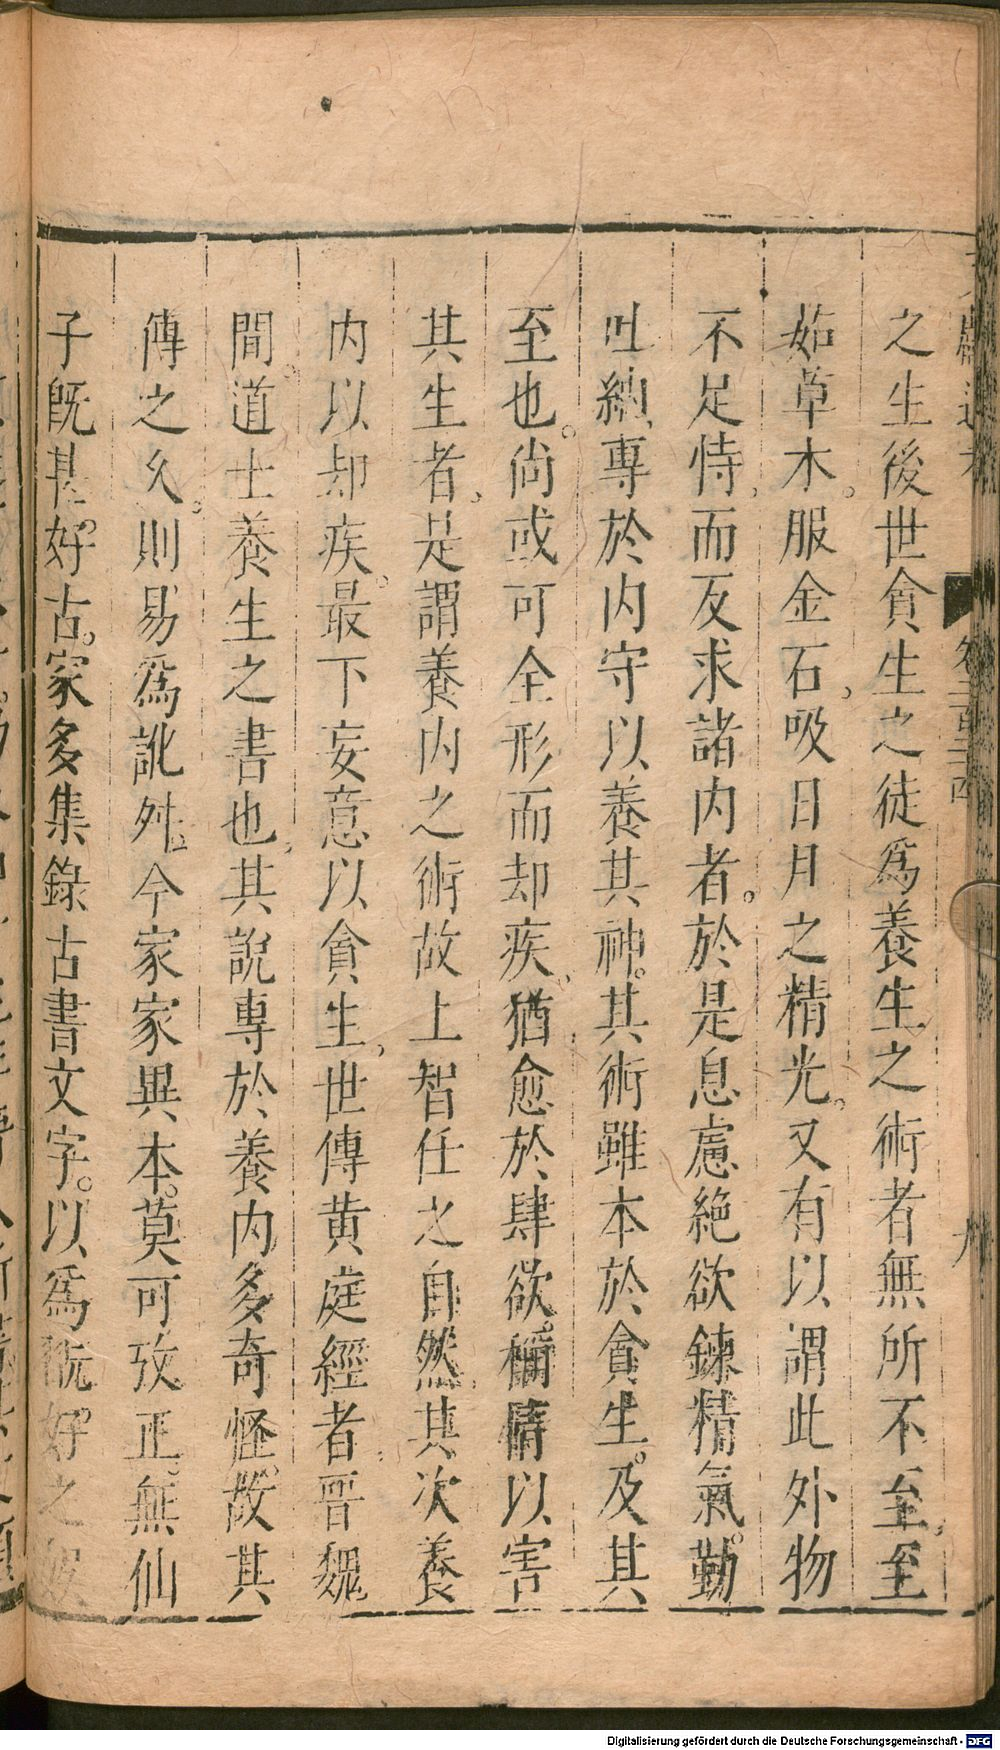 之生後世貪生之徒爲養生之術者無所不至至
茹草木。服金石,吸日月之精光。又有以謂此外物
不足恃,而反求諸内者。於是息慮絶欲鍊精氣。勤
吐納,專於内守以養其神。其術雖本於貪生。及其
至也。尚或可全形而却疾,猶愈於肆欲。稱情以害
其生者,是謂養内之術故上智任之自然,其次養
内以却疾。最下妄意以貪生,世傳黄庭經者,晉魏
間。道士養生之書也,其説專於養内多奇怪。故其
傳之久。則易爲訛舛。今家家異本。莫可攷正。無仙
子既甚。好古。家多集錄古書文字。以爲翫。好之娱
卷三百三十四
九
Digitalisierung gefördert durch die Deutsche Forschungsgemeinschaft - DFG